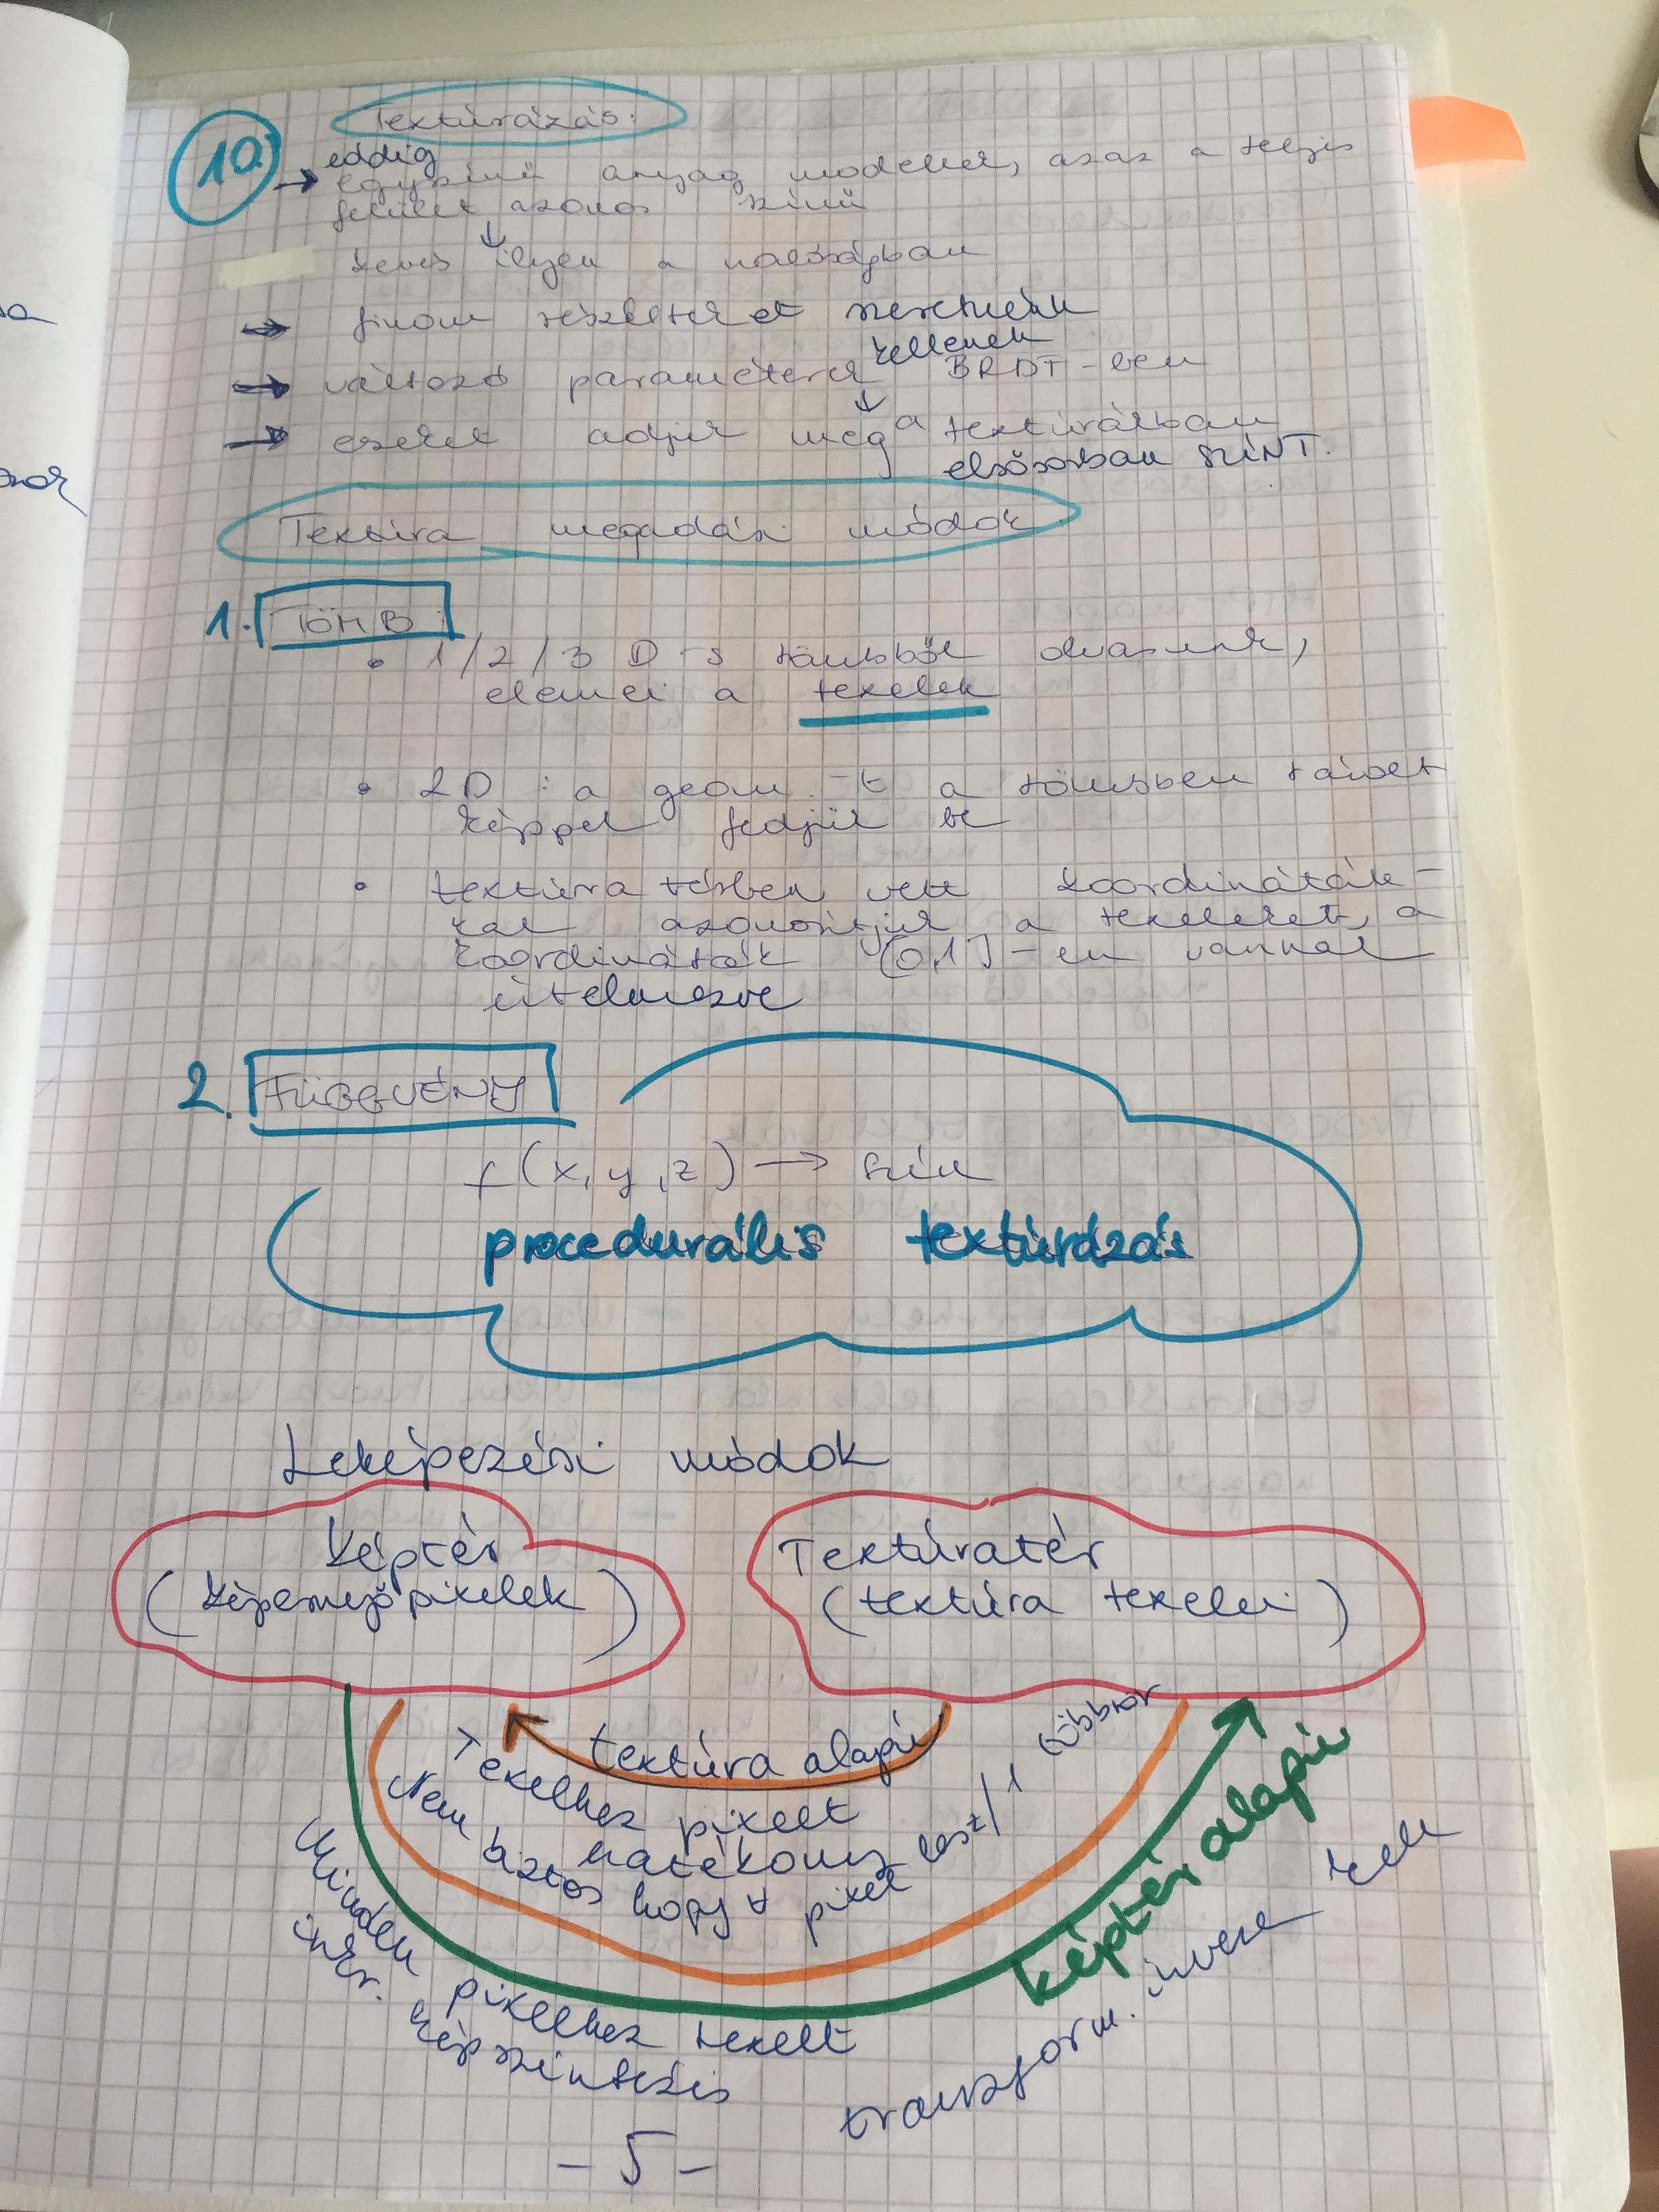 10.
Textúrázás:
→ eddig
egyszínű anyag modellek, azaz a teljes
felület azonos színű
↓
kevés ilyen a valóságban
→ finom részleteket szeretnénk
→ változó paraméterek kellenek BRDT-ben
↓
→ ezeket adjuk meg a textúrákban
elsősorban SZÍNT.
Textúra megadási módok
1. TÖMB:
• 1/2/3 D-s tömbből olvasunk,
elemei a texelek
• 2D: a geom.-t a tömbben tárolt
képpel fedjük be
• textúra térben vett koordináták-
kal azonosítjuk a texeleket, a
koordináták [0,1]-en vannak
értelmezve
2. FÜGGVÉNY
f(x,y,z) → szín
procedurális textúrázás
Leképezési módok
Képtér
(képernyő pixelek)
Textúratér
(textúra texelei)
textúra alapú
Texelhez pixelt
hatékony
Nem biztos hogy ∀ pixel lesz/1 többször
képtér alapú
Minden pixelhez texelt
inkr. képszintézis
transzform. inverze kell
- 5 -